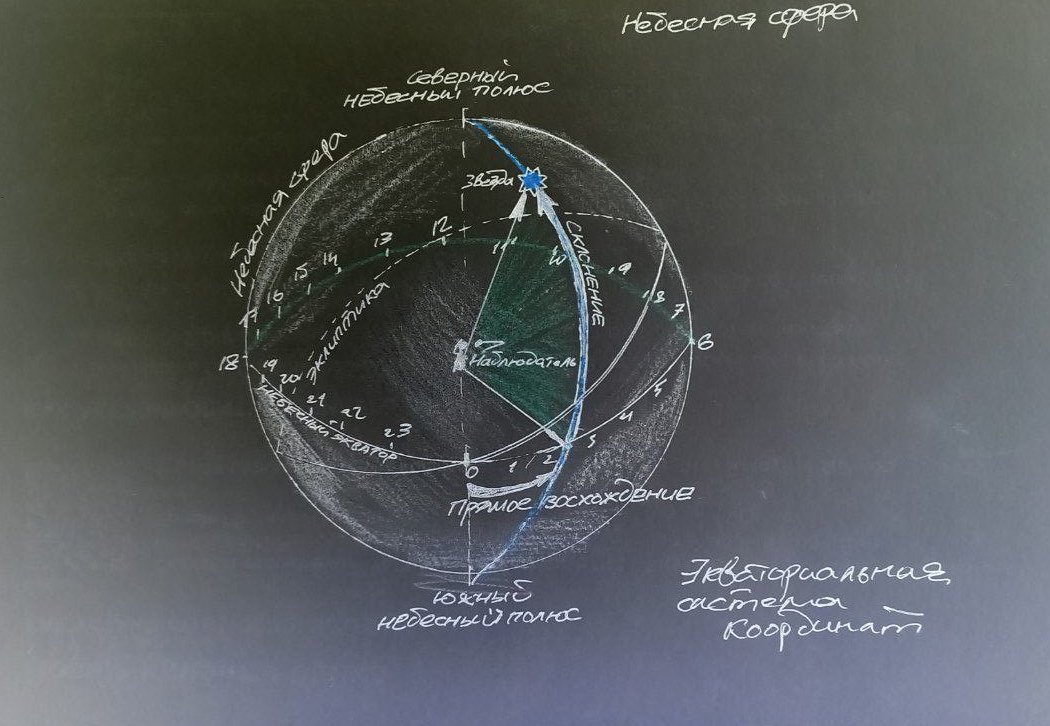 Небесная сфера
Северный
небесный полюс
Небесная сфера
Звезда
Склонение
12
13
14
15
16
17
18
11
10
9
8
7
6
Эклиптика
Наблюдатель
19
20
21
22
23
Небесный экватор
0
1
2
3
4
5
Прямое восхождение
Южный
небесный полюс
Экваториальная
система
координат